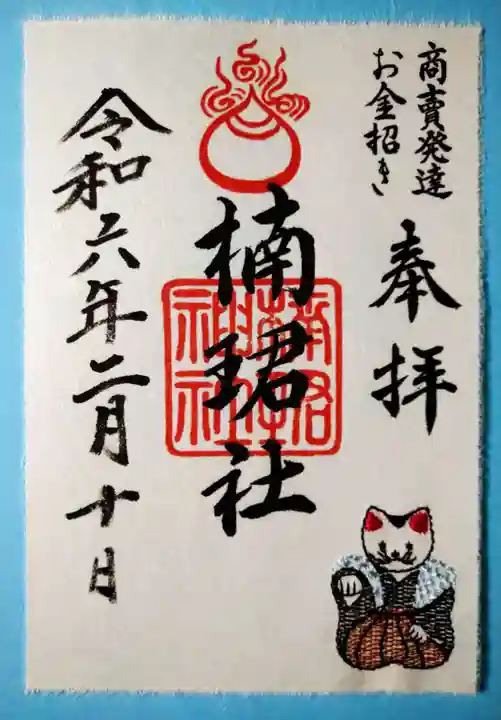 商賣発達
お金招き
奉拝
楠珺社
楠珺
神社
令和六年二月十日